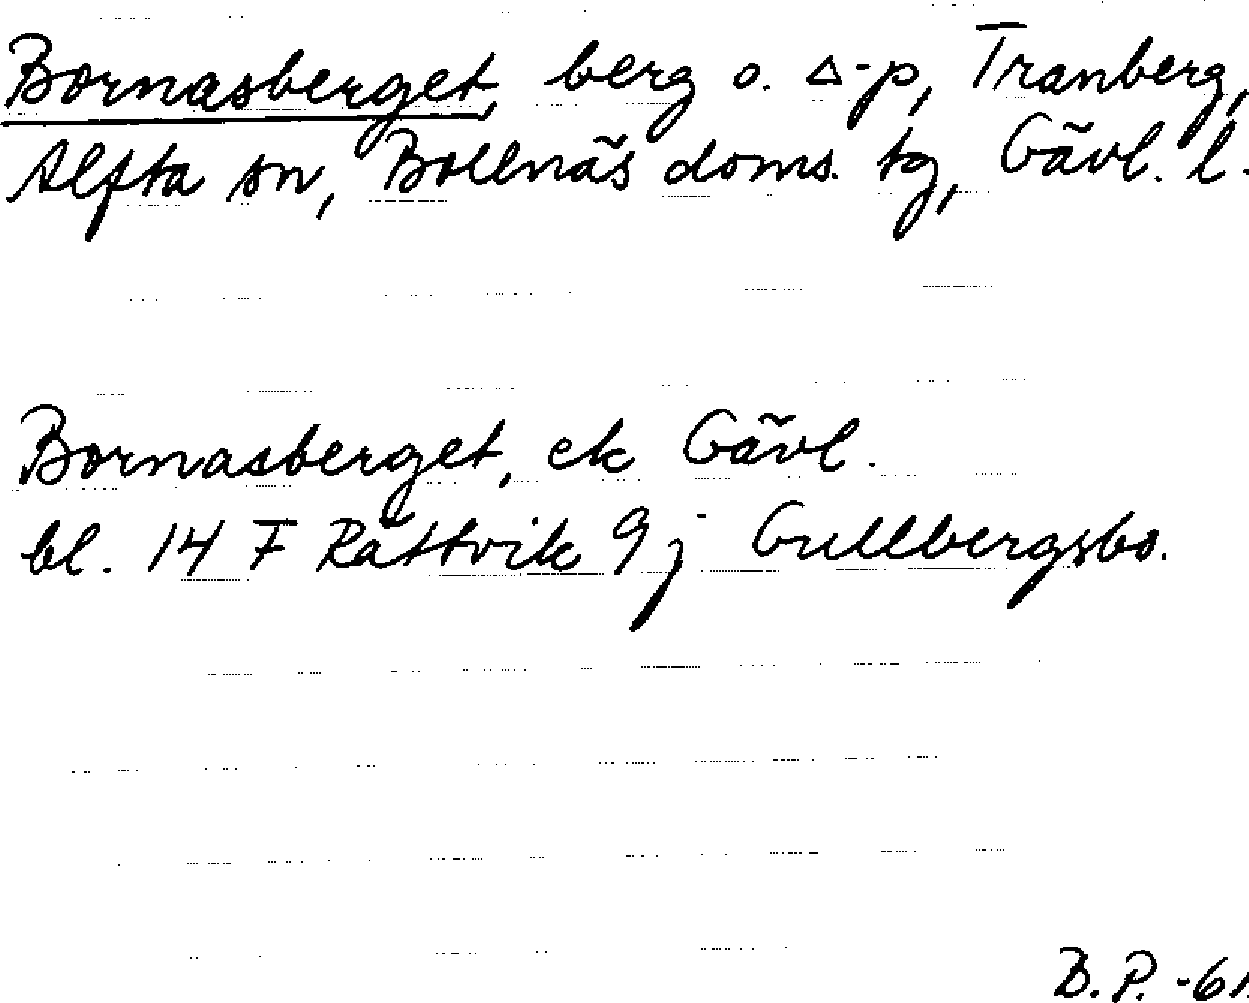 Bornasberget, berg o. △-p, Tranberg,
Alfta sn, Bollnäs doms. tg, Gävl. l.
Bornasberget, ek Gävl.
bl. 14 F Rättvik 9 j Gullbergsbo.
B.P. -61